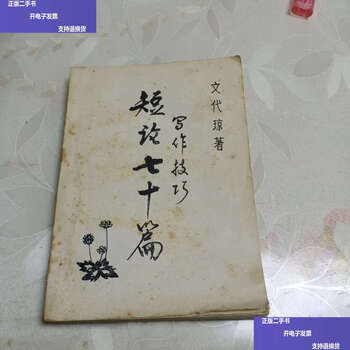 正版二手书
开电子发票
支持退换货
文代琼著
写作技巧
短论七十篇
正版二手书
开电子发票
支持退换货